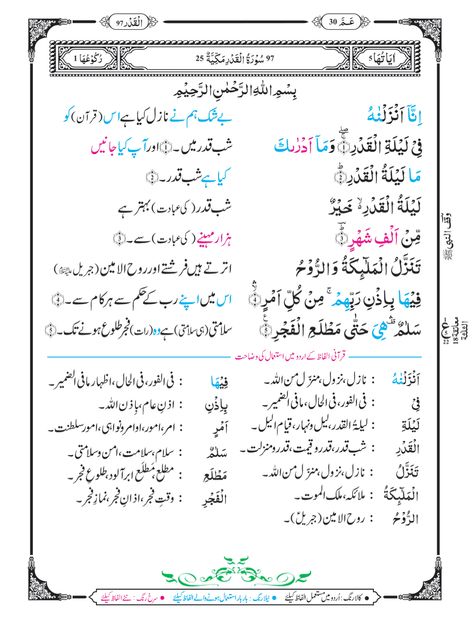 اَلْقَدْر 97
عَـمّ 30
رُكُوْعُهَا 1
97 سُوْرَةُ الْقَدْرِ مَكِّيَّةٌ 25
اٰيَاتُهَا 5
بِسْمِ اللّٰهِ الرَّحْمٰنِ الرَّحِيْمِ
اِنَّاۤ اَنْزَلْنٰهُ بے شک ہم نے نازل کیا ہے اس (قرآن) کو
فِيْ لَيْلَةِ الْقَدْرِ ۝ وَمَاۤ اَدْرٰىكَ شب قدر میں۔ اور آپ کیا جانیں
مَا لَيْلَةُ الْقَدْرِ ۝ کیا ہے شب قدر۔
لَيْلَةُ الْقَدْرِ خَيْرٌ شب قدر (کی عبادت) بہتر ہے
مِّنْ اَلْفِ شَهْرٍ ۝ ہزار مہینے (کی عبادت) سے۔
تَنَزَّلُ الْمَلٰٓئِكَةُ وَالرُّوْحُ اترتے ہیں فرشتے اور روح الامین (جبریل)
فِيْهَا بِاِذْنِ رَبِّهِمْ مِنْ كُلِّ اَمْرٍ ۝ اس میں اپنے رب کے حکم سے ہر کام سے۔
سَلٰمٌ هِيَ حَتّٰى مَطْلَعِ الْفَجْرِ ۝ سلامتی (ہی سلامتی) ہے وہ (رات) فجر طلوع ہونے تک۔
وقف النبی ﷺ
قرآنی الفاظ کے اردو میں استعمال کی وضاحت
اَنْزَلْنٰهُ : نازل، نزول، منزل من اللہ۔ فِيْهَا : فی الفور، فی الحال، اظہار مافی الضمیر۔
فِيْ : فی الفور، فی الحال، مافی الضمیر۔ بِاِذْنِ : اذن عام، باذن اللہ۔
لَيْلَةِ : لیلۃ القدر، لیل ونہار، قیام اللیل۔ اَمْرٍ : امر، امور، اوامر ونواہی، امور سلطنت۔
الْقَدْرِ : شب قدر، قدر وقیمت، قدر ومنزلت۔ سَلٰمٌ : سلام، سلامت، امن وسلامتی۔
تَنَزَّلُ : نازل، نزول، منزل من اللہ۔ مَطْلَعِ : مطلع، مطلع ابر آلود، طلوع فجر۔
الْمَلٰٓئِكَةُ : ملائکہ، ملک الموت۔ الْفَجْرِ : وقت فجر، اذان فجر، نماز فجر۔
الرُّوْحُ : روح الامین (جبریل)۔
کالا رنگ : اردو میں مستعمل الفاظ کیلئے نیلا رنگ : بار بار استعمال ہونے والے الفاظ کیلئے سرخ رنگ : نئے الفاظ کیلئے